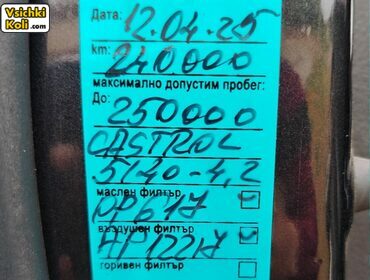 Vsichki
Koli.com
Дата: 12.04.25
km:
240000
максимално допустим пробег:
До:
250000
CASTROL
5/40-4,2
маслен филтър
OP617
въздушен филтър
AP122/7
горивен филтър